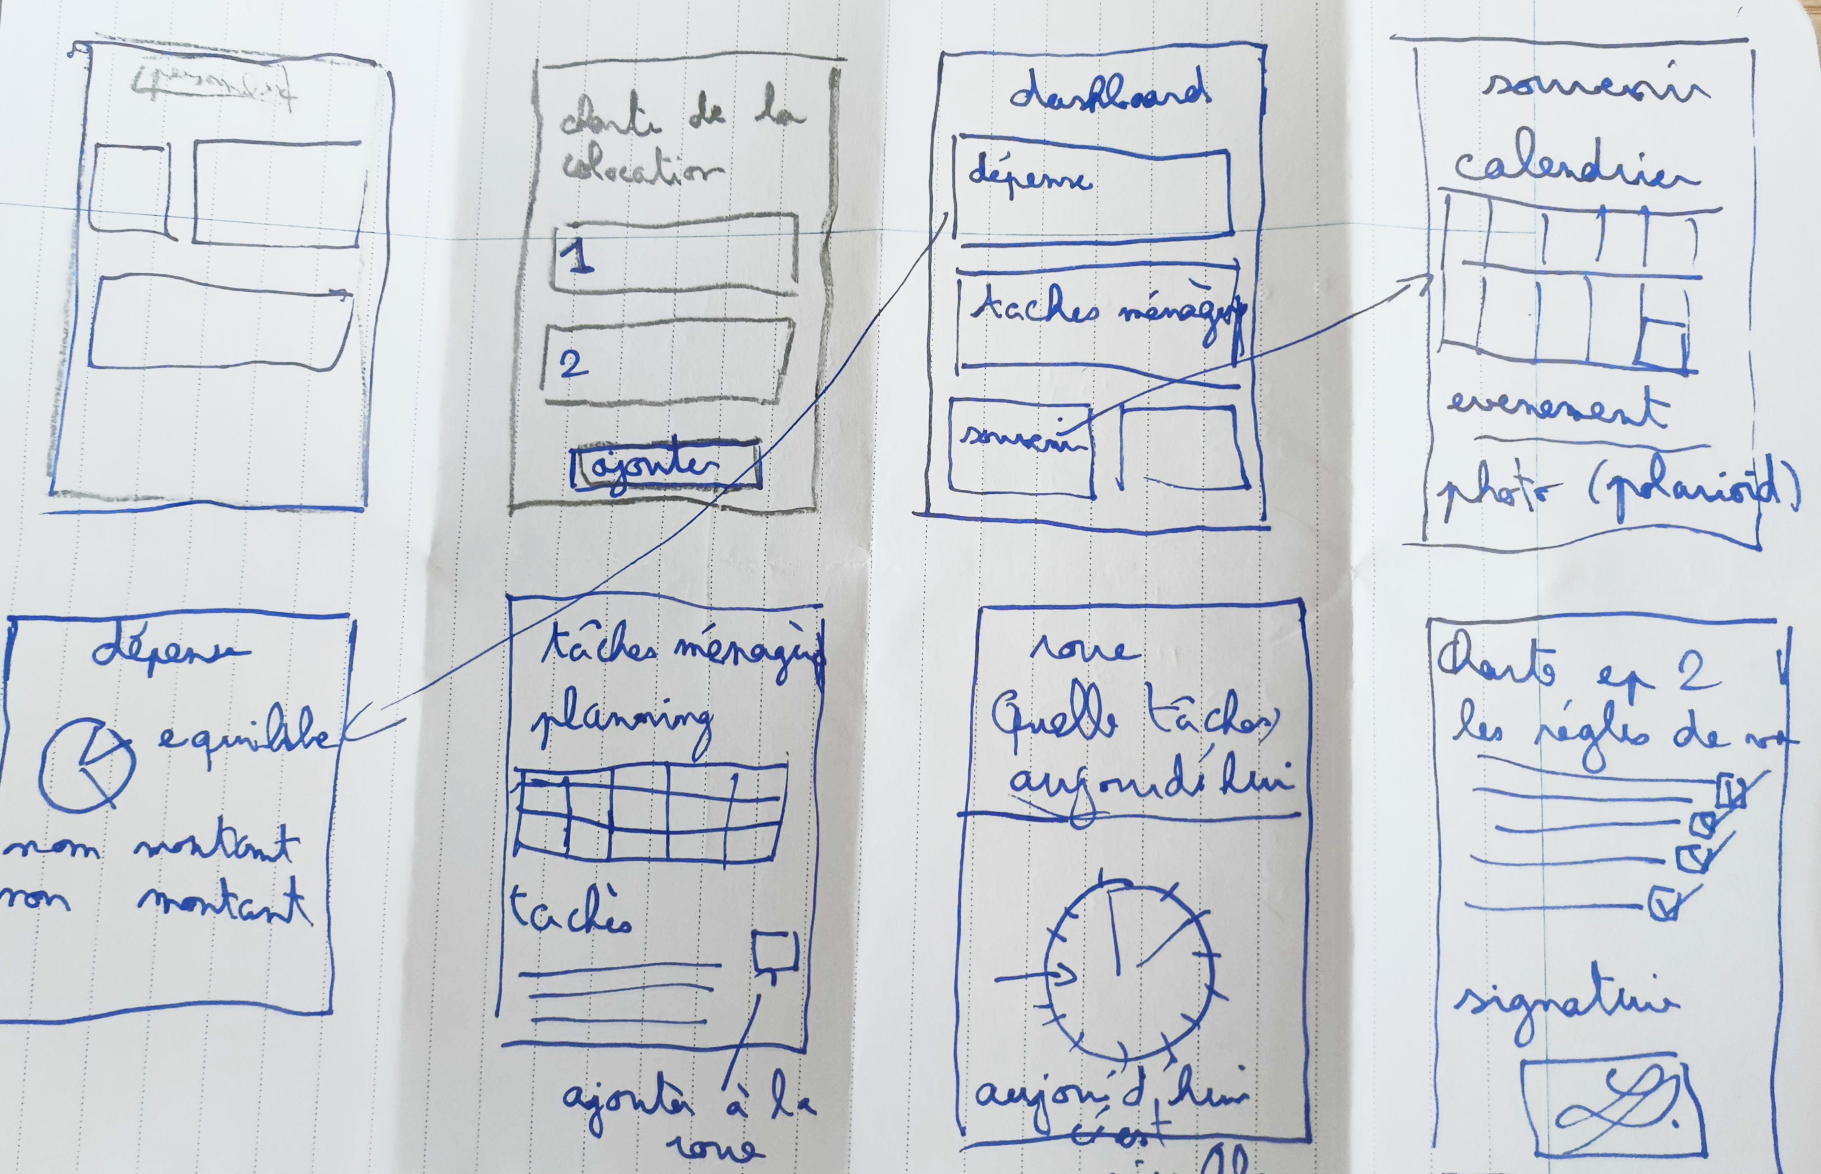 charte de la
colocation
1
2
ajouter
dashboard
dépense
taches ménagèr
souvenir
souvenir
calendrier
evenement
photo (polarioïd)
dépense
equilibe
nom montant
nom montant
tâches ménagèr
planning
tachès
ajouter à la
roue
roue
Quelle tâches
aujourd'hui
aujourd'hui
c'est
Charte ep 2
les régles de
signature